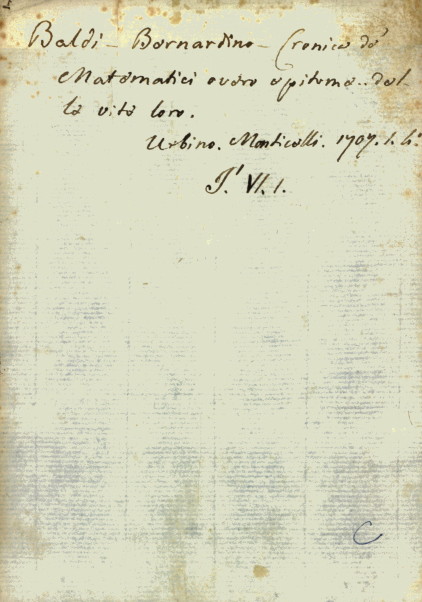 Baldi - Bernardino - Cronica de'
Matematici overo epitome.. del-
le vite loro.
Urbino. Monticelli. 1707. 1. 4°
J.' VI. 1.
C